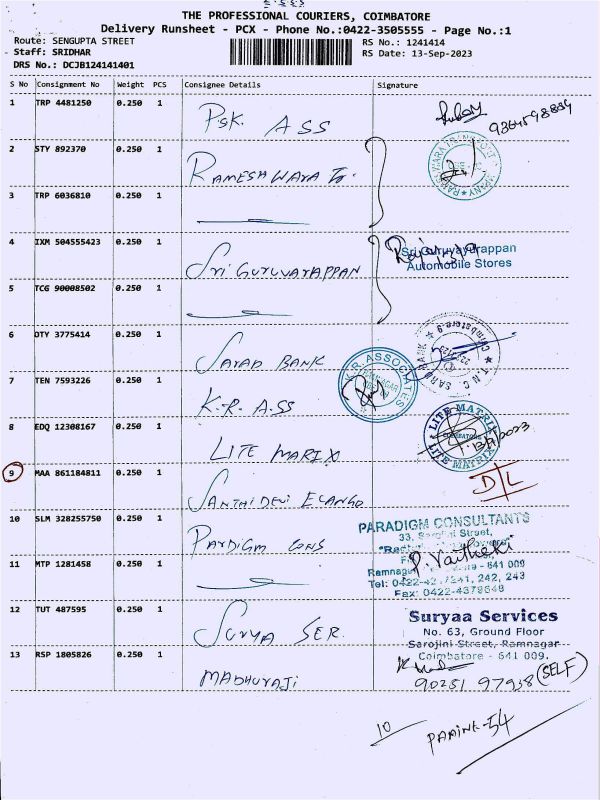 THE PROFESSIONAL COURIERS, COIMBATORE
Delivery Runsheet - PCX - Phone No.:0422-3505555 - Page No.:1
Route: SENGUPTA STREET RS No.: 1241414
Staff: SRIDHAR RS Date: 13-Sep-2023
DRS No.: DCJB124141401
S No Consignment No Weight PCS Consignee Details Signature
1 TRP 4481250 0.250 1 PSK. ASS 9364598839
2 STY 892370 0.250 1 RAMESHWARA Tr.
3 TRP 6036810 0.250 1
4 IXM 504555423 0.250 1 Sri GURUVARAPPAN Sri Guruvayurappan
Automobile Stores
5 TCG 90008502 0.250 1
6 OTY 3775414 0.250 1 SARAD BANK
7 TEN 7593226 0.250 1 K.R. ASS K.R. ASSOCIATES
8 EDQ 12308167 0.250 1 LITE MARIX LITE MATRIX 13/9/2023
9 MAA 861184811 0.250 1 SANTHI DEVI ELANGO D/L
10 SLM 328255750 0.250 1 PARDIGM CONS PARADIGM CONSULTANTS
33, Sarojini Street,
P. Vaitheki
Ramnagar 641 009
Tel: 0422-42 7241, 242, 243
Fax: 0422-4378648
11 MTP 1281458 0.250 1
12 TUT 487595 0.250 1 SURYA SER. Suryaa Services
No. 63, Ground Floor
Sarojini Street, Ramnagar
Coimbatore - 641 009.
13 RSP 1805826 0.250 1 MADHURAJI 90251 97938 (SELF)
10